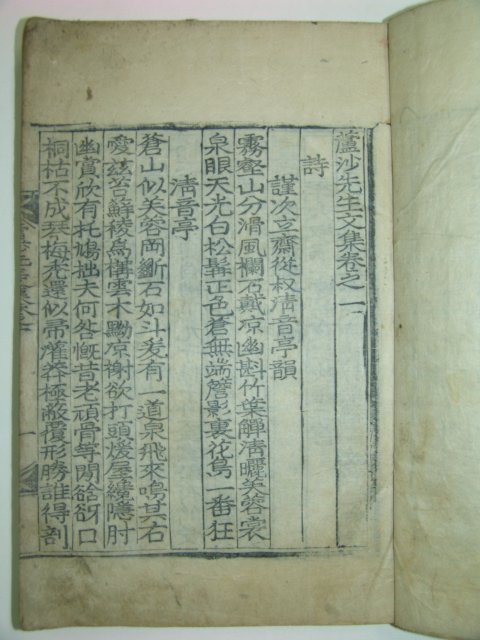 蘆沙先生文集卷之一
詩
謹次立齋從叔淸音亭韻
霧壑山分滑風欄石戴凉幽斟竹葉觶淸曬芙蓉裳
泉眼天光白松髯正色蒼無端簷影裏花鳥一番狂
淸音亭
蒼山似芙蓉岡斷石如斗爰有一道泉飛來鳴其右
愛玆苔蘚稜烏構雲木黝凉榭欲打頭煖屋纔隱肘
幽賞欣有托鳩拙夫何咎慨昔老頑骨等閒谽谺口
桐枯不成琹梅老還似帚灌莽極蔽覆形勝誰得剖